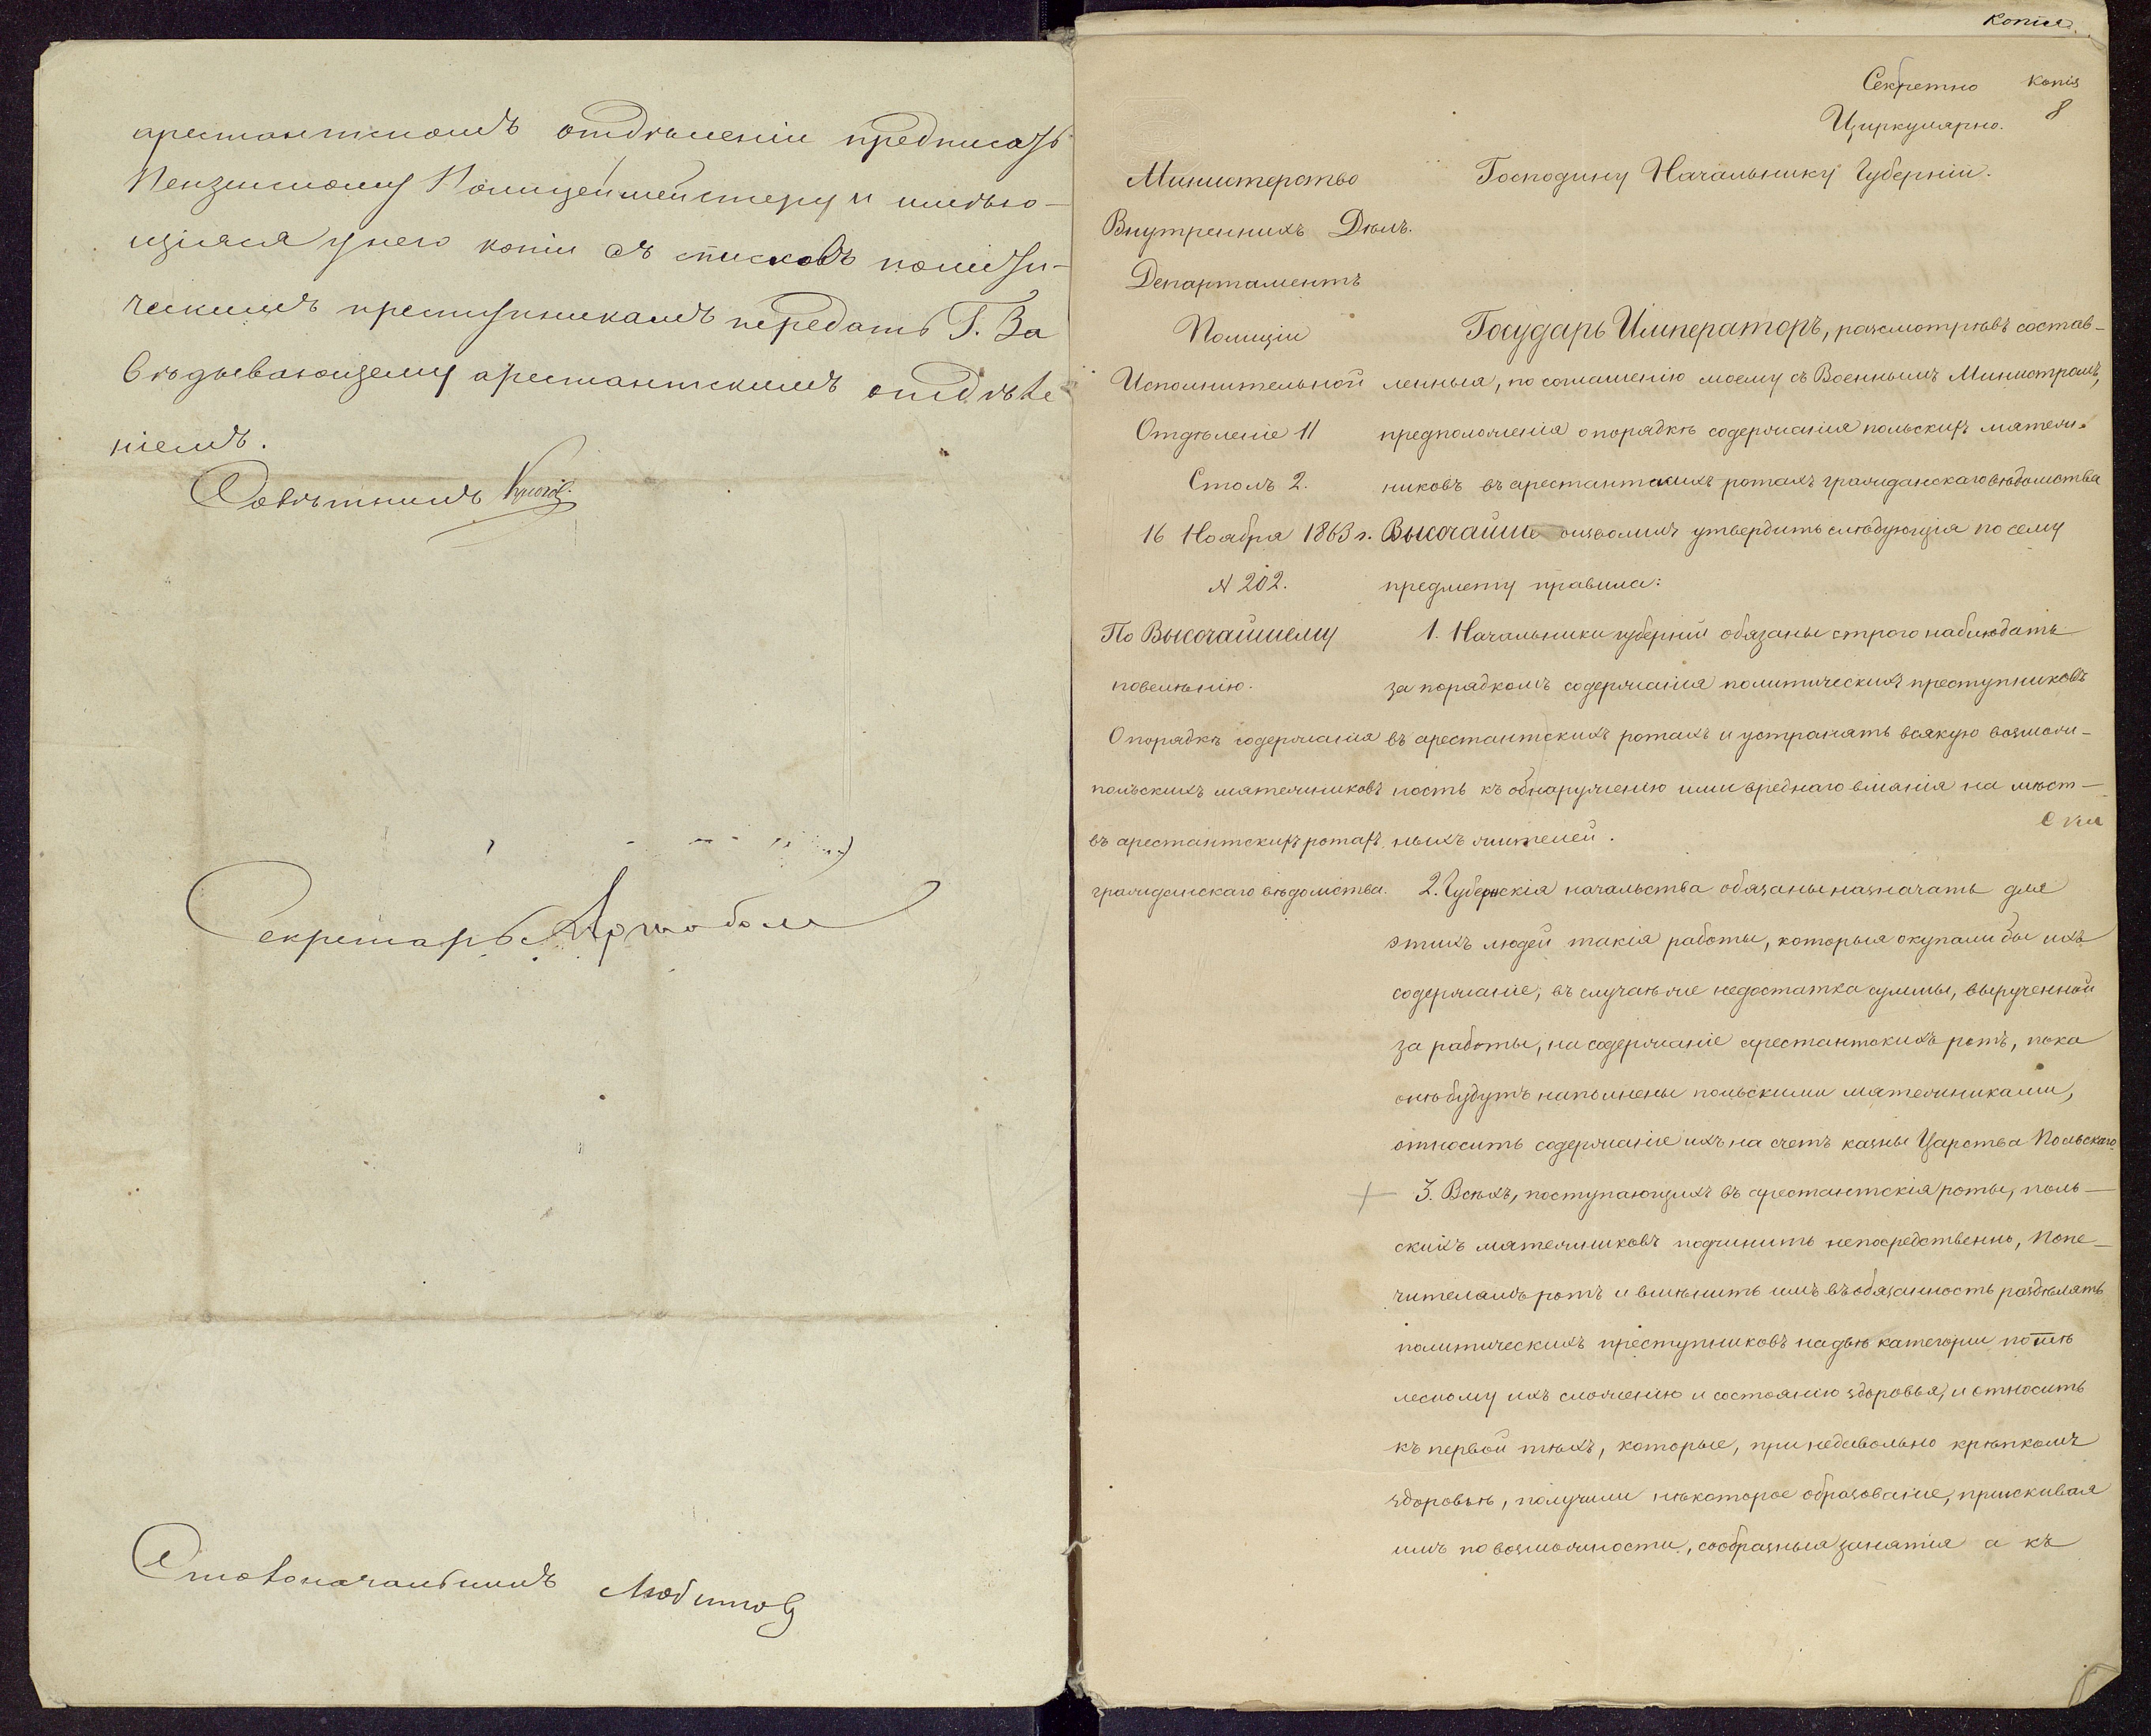 арестантскомъ отдѣленіи предписать
Пензенскому Полицеймейстеру и имѣю-
щіяся у него копіи съ списковъ полити-
ческимъ преступникамъ передать Г. За
вѣдывающему арестантскимъ отдѣле
ніемъ.
Совѣтникъ
Секретарь
Столоначальникъ Любимовъ
Копія.
Секретно Копія
8
Циркулярно.
Министерство
Внутреннихъ Дѣлъ.
Департаментъ
Полиціи
Исполнительной
Отдѣленіе II
Столъ 2.
16 Ноября 1863 г.
№ 202.
По Высочайшему
повелѣнію.
О порядкѣ содержанія
польскихъ мятежниковъ
въ арестантскихъ ротахъ
гражданскаго вѣдомства.
Господину Начальнику Губерніи.
Государь Императоръ, разсмотрѣвъ состав-
ленныя, по соглашенію моему съ Военнымъ Министромъ,
предположенія о порядкѣ содержанія польскихъ мятеж-
никовъ въ арестантскихъ ротахъ гражданскаго вѣдомства
Высочайше изволилъ утвердить слѣдующія по сему
предмету правила:
1. Начальники губерній обязаны строго наблюдать
за порядкомъ содержанія политическихъ преступниковъ
въ арестантскихъ ротахъ и устранять всякую возмож-
ность къ обнаруженію ими вреднаго вліянія на мѣст-
ныхъ жителей.
2. Губернскія начальства обязаны назначать для
этихъ людей такія работы, которыя окупали бы ихъ
содержаніе; въ случаѣ же недостатка суммы, вырученной
за работы, на содержаніе арестантскихъ ротъ, пока
онѣ будутъ наполнены польскими мятежниками,
относить содержаніе ихъ на счетъ казны Царства Польскаго.
3. Всѣхъ, поступающихъ въ арестантскія роты, поль-
скихъ мятежниковъ подчинить непосредственно, Попе-
чителямъ ротъ и вмѣнить имъ въ обязанность раздѣлять
политическихъ преступниковъ на двѣ категоріи по тѣ
лесному ихъ сложенію и состоянію здоровья, и относить
къ первой тѣхъ, которые, при недовольно крѣпкомъ
здоровьѣ, получили нѣкоторое образованіе, пріискивая
имъ по возможности, сообразныя занятія а къ